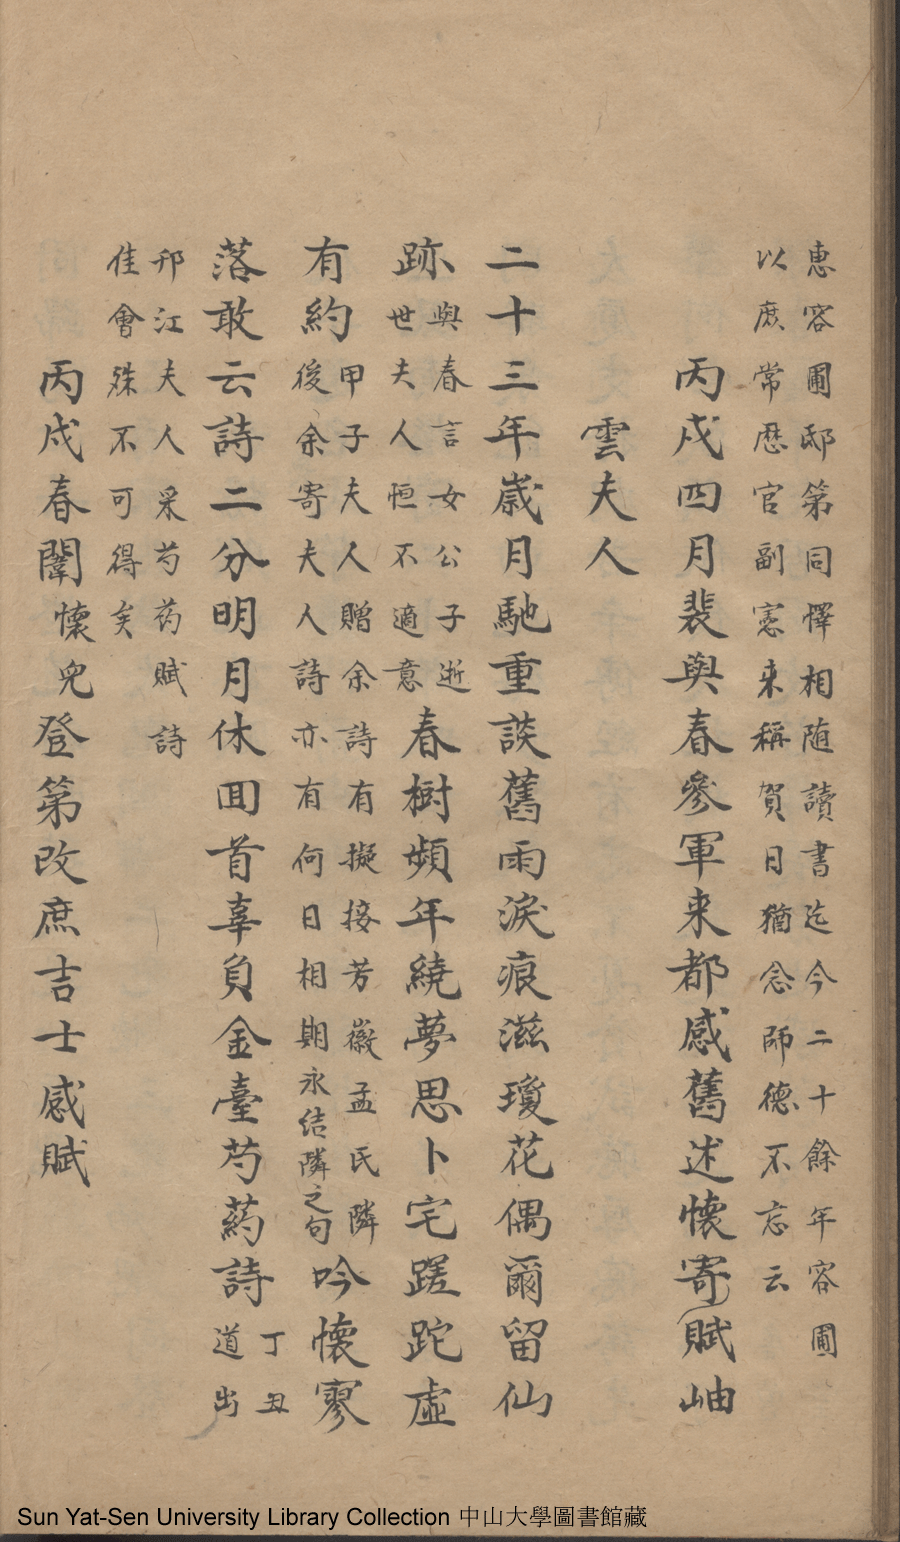 惠容圃邸第同懌相随讀書迄今二十餘年容圃
以庶常歷官副憲来稱賀日猶念師德不忘云
丙戌四月裴與春參軍来都感舊述懷寄賦岫
雲夫人
二十三年歲月馳重談舊雨淚痕滋瓊花偶爾留仙
跡與春言女公子逝
世夫人恒不適意春樹頻年繞夢思卜宅蹉跎虛
有約甲子夫人贈余詩有擬接芳徽孟氏隣
後余寄夫人詩亦有何日相期永結隣之句吟懷寥
落敢云詩二分明月休回首辜負金臺芍葯詩丁丑
道出
邗江夫人采芍葯賦詩
佳會殊不可得矣
丙戌春闈懷兒登第改庶吉士感賦
Sun Yat-Sen University Library Collection 中山大學圖書館藏